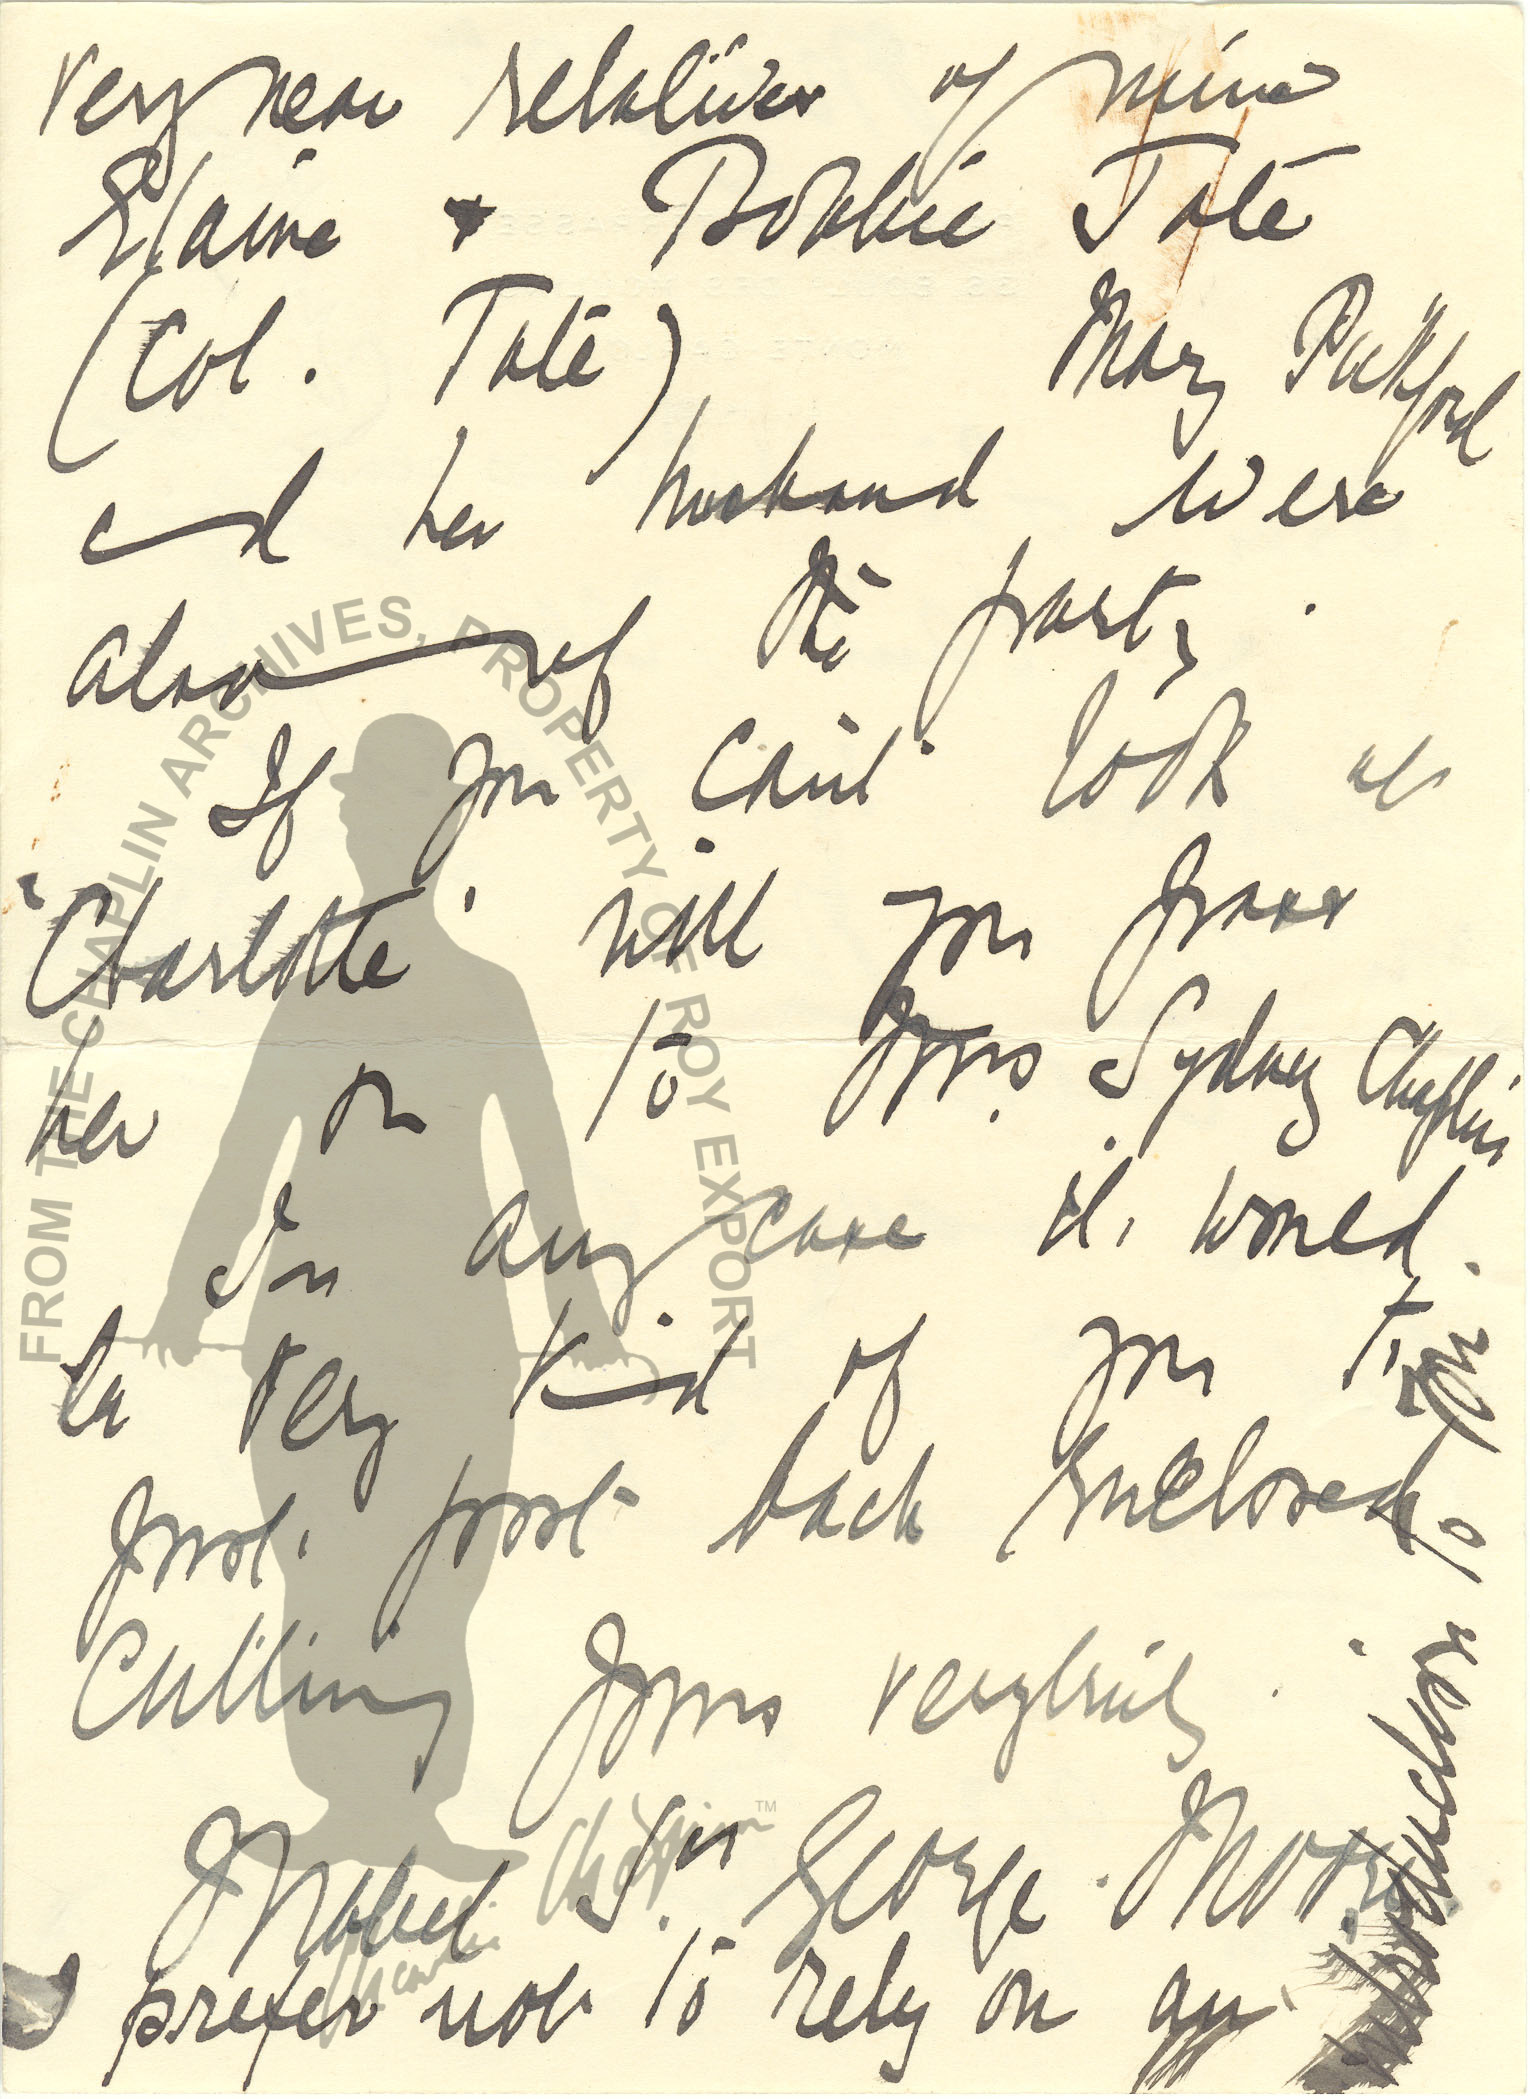 very near relatives of mine
Elaine & Bobbie Tate
(Col. Tate) Mary Pickford
and her husband were
also of the party.
If you can't look at
"Charlotte" will you pass
her on to Mrs. Sydney Chaplin.
In any case it would
be very kind of you to
just post back enclosed
cutting Yours very truly.
Mabel St. George Moore.
I prefer not to rely on an introduction to you
FROM THE CHAPLIN ARCHIVES, PROPERTY OF ROY EXPORT
Charlie Chaplin™